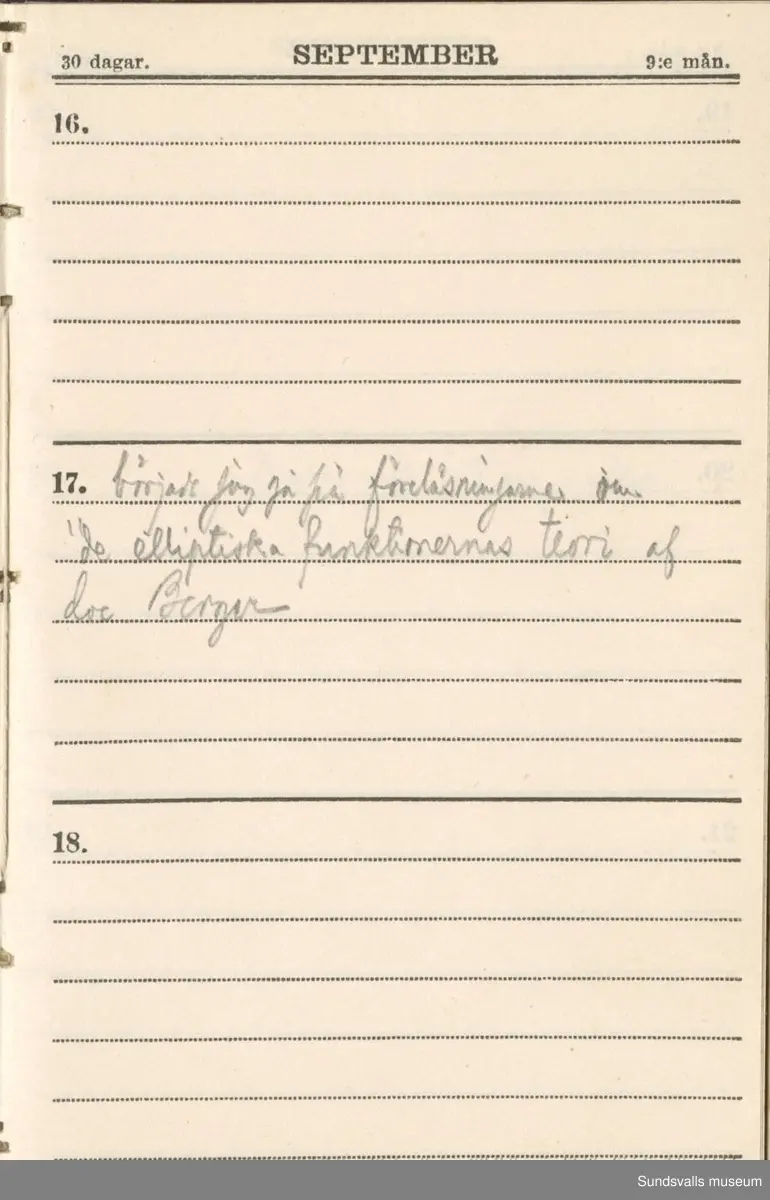 30 dagar. SEPTEMBER 9:e mån.
16.
17. började jag gå på föreläsningarne om
"de elliptiska funktionernas teori af
doc Berger
18.
Sundsvalls museum